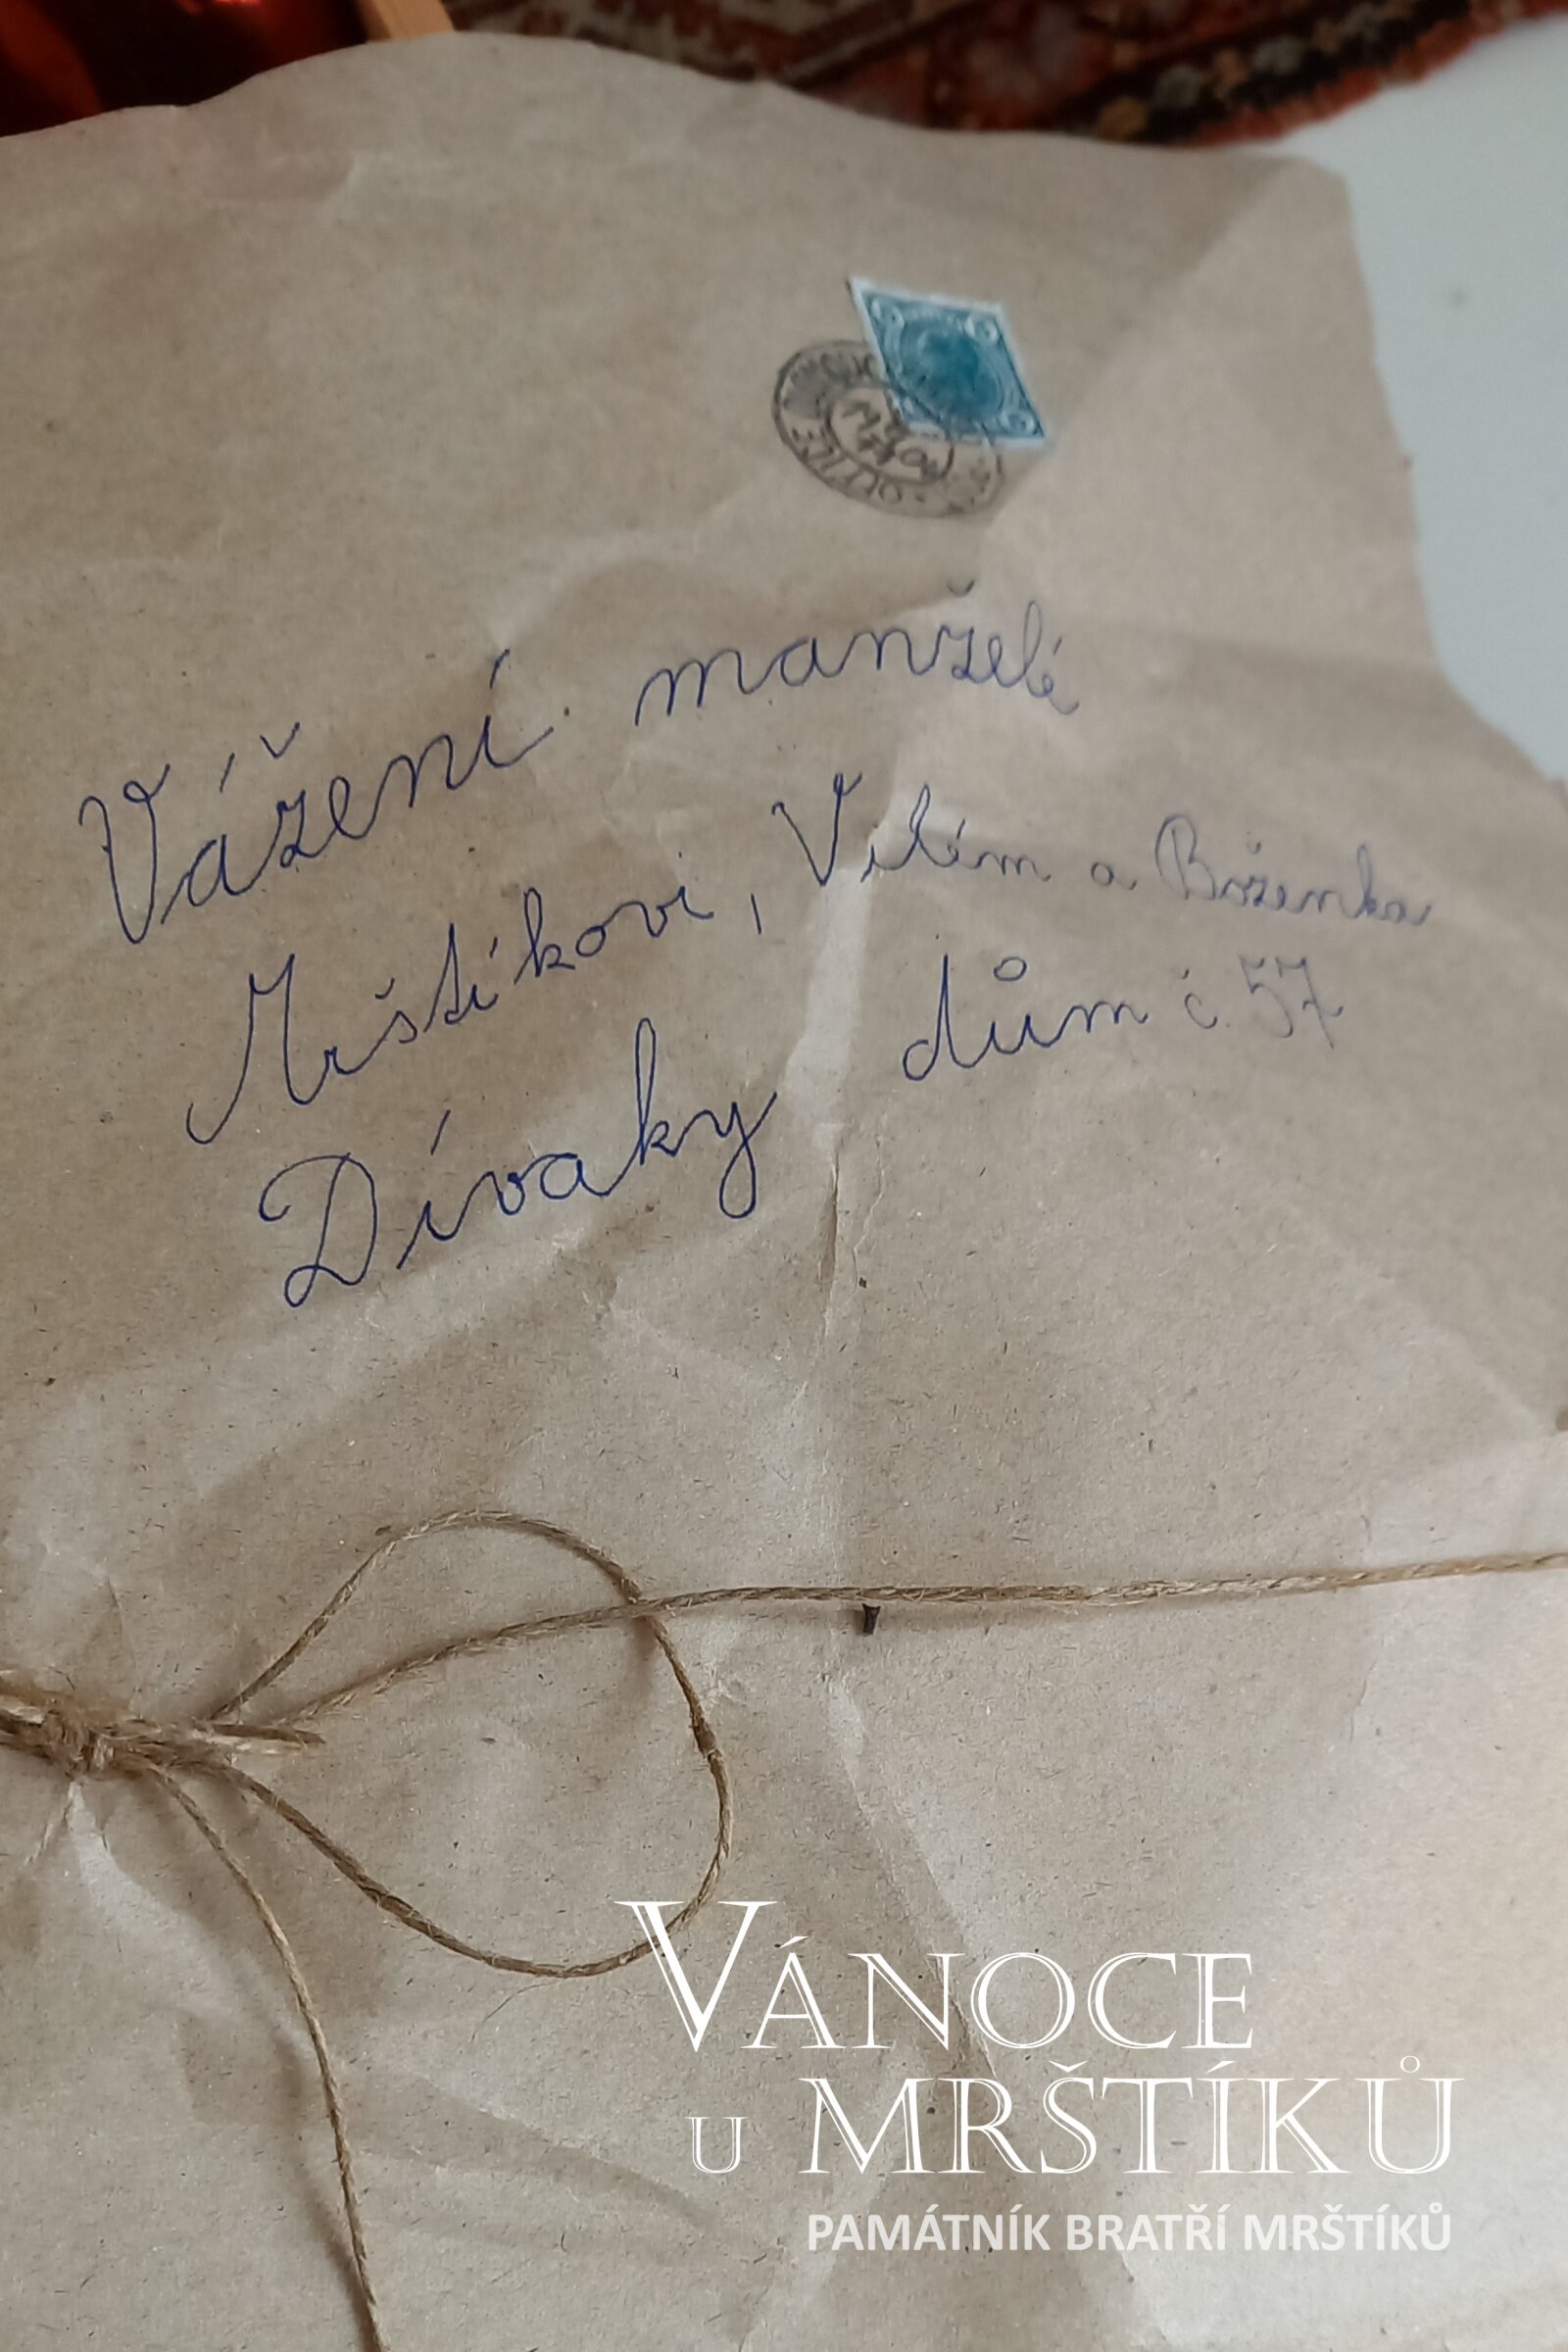 Vážení manželé
Mrštíkovi, Vilém a Boženka
Dívaky dům č. 57
VÁNOCE
U MRŠTÍKŮ
PAMÁTNÍK BRATŘÍ MRŠTÍKŮ